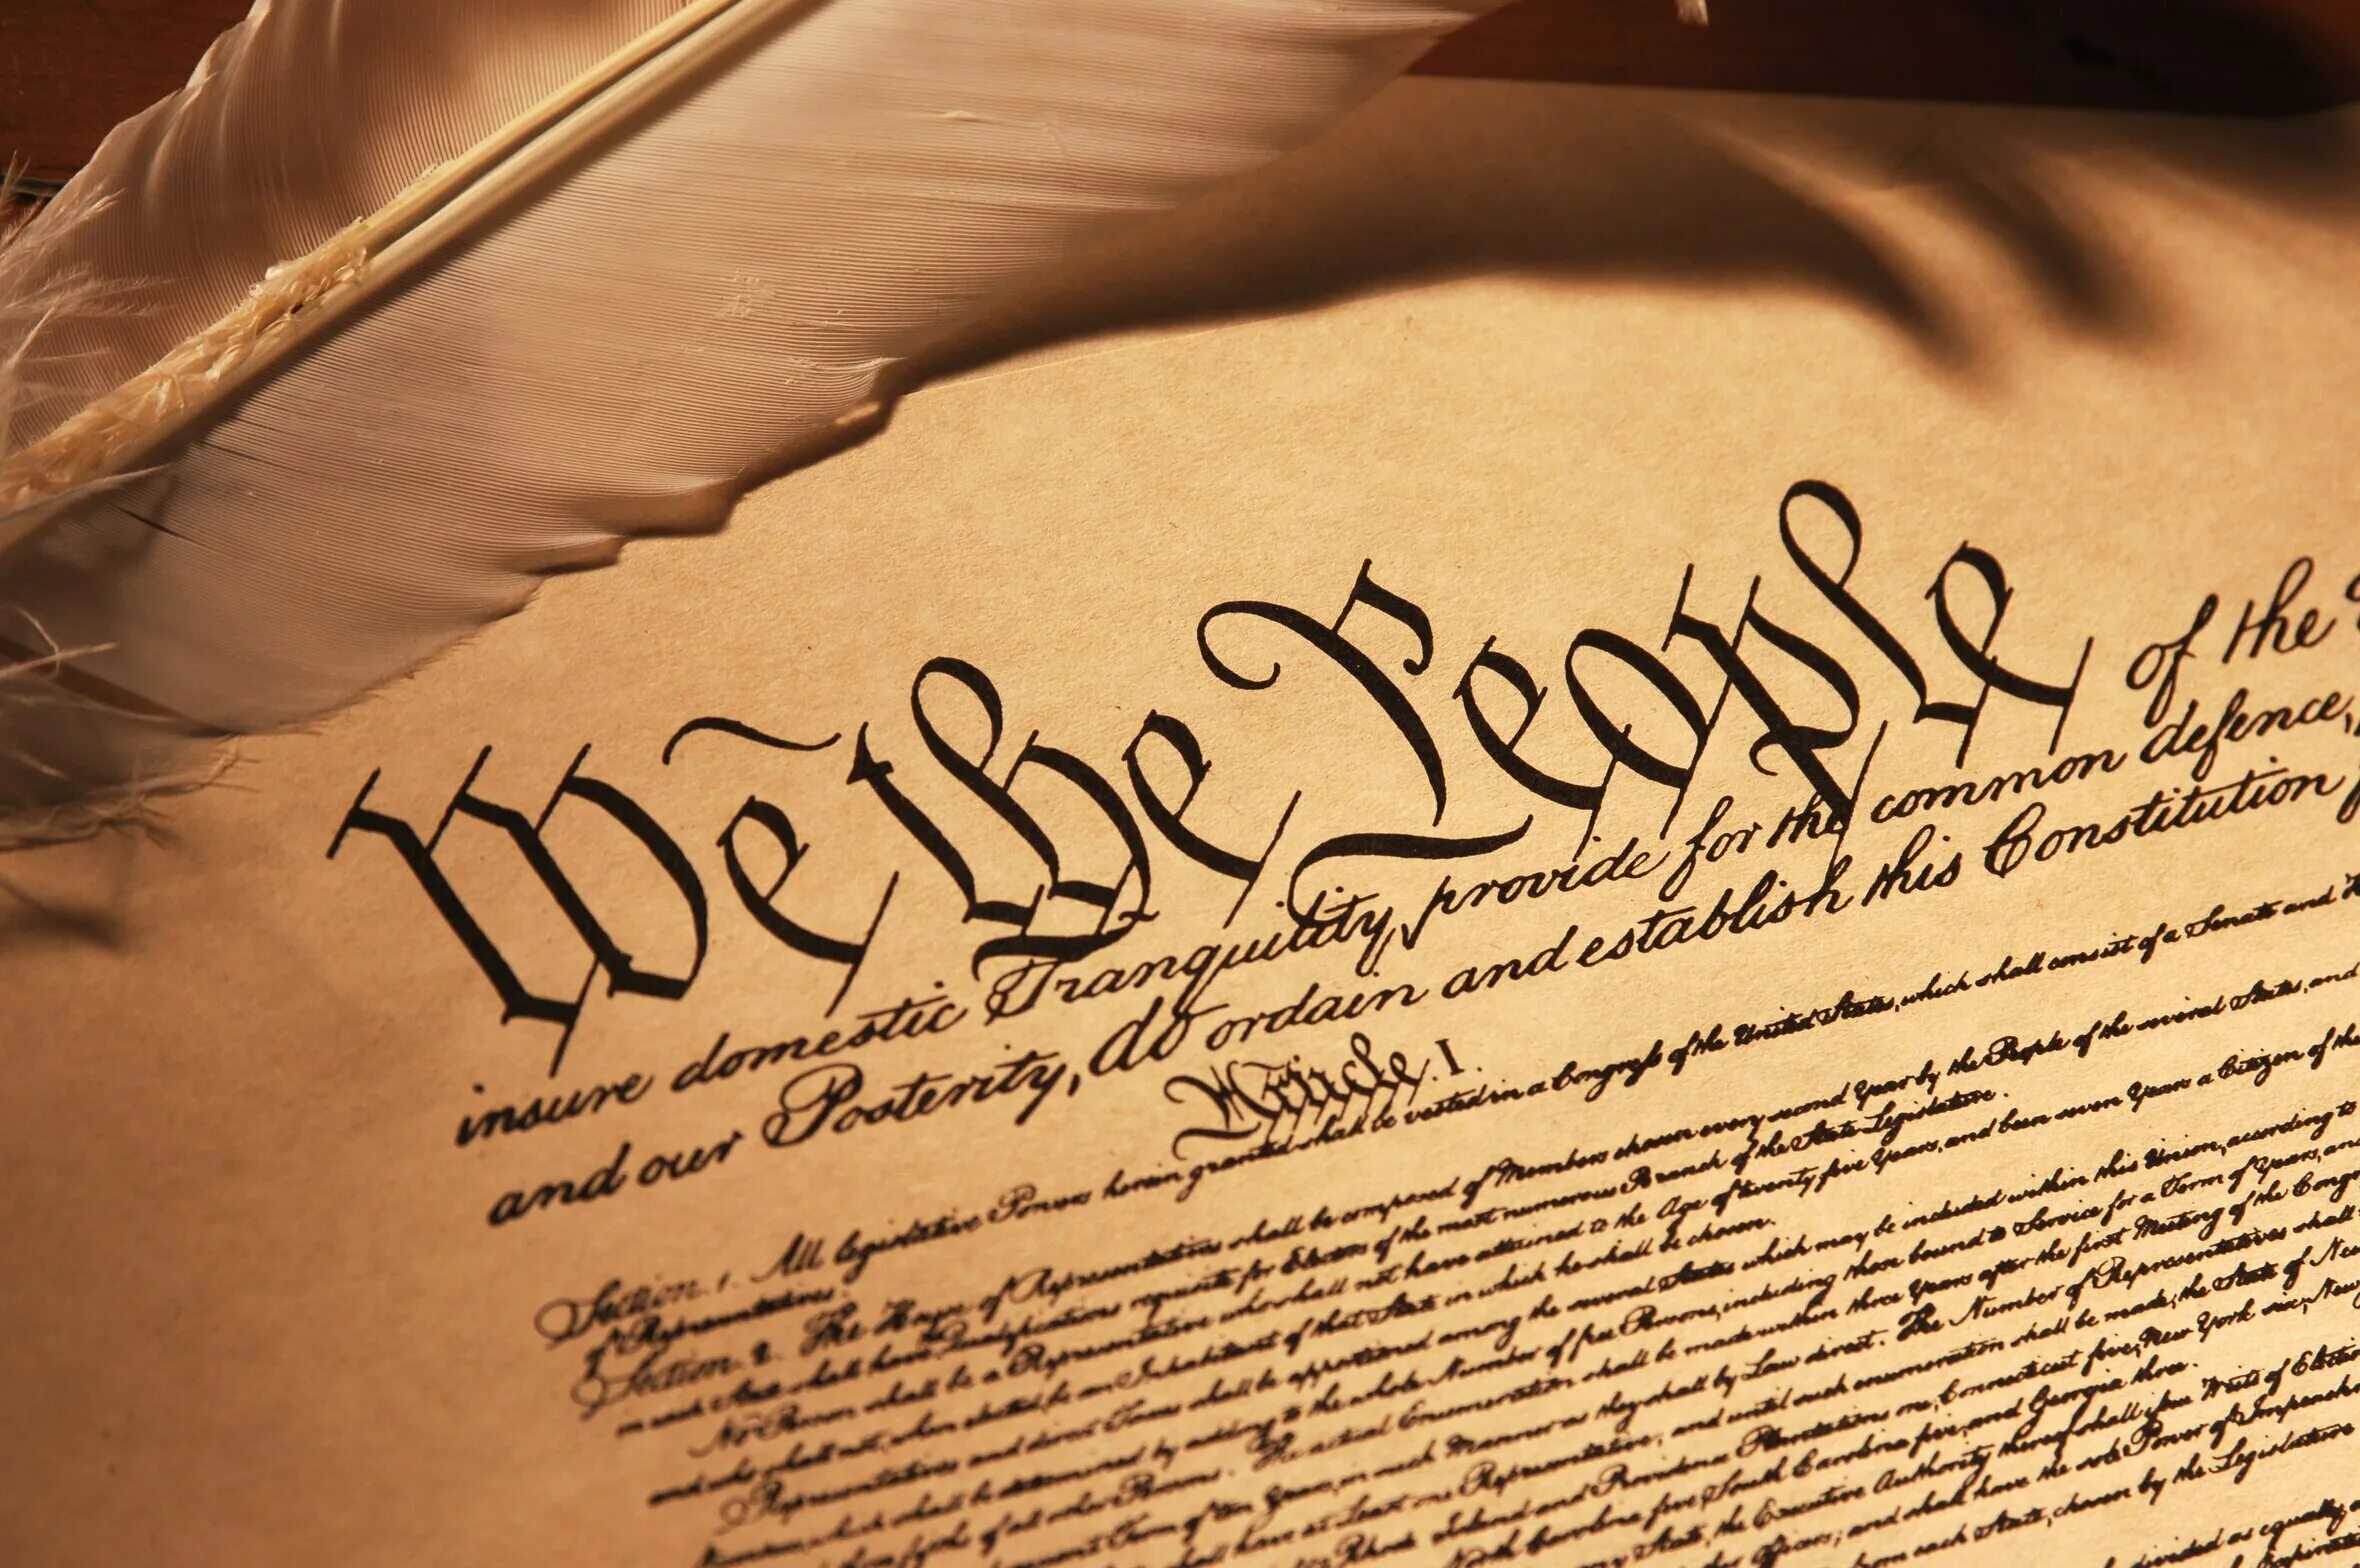 We the People of the
insure domestic Tranquility, provide for the common defence,
and our Posterity, do ordain and establish this Constitution
Article. I.
Section. 1. All legislative Powers herein granted shall be vested in a Congress of the United States, which shall consist of a Senate and
of Representatives.
Section. 2. The House of Representatives shall be composed of Members chosen every second Year by the People of the several States, and
in each State shall have Qualifications requisite for Electors of the most numerous Branch of the State Legislature.
No Person shall be a Representative who shall not have attained to the Age of twenty five Years, and been seven Years a Citizen of the
and who shall not, when elected, be an Inhabitant of that State in which he shall be chosen.
Representatives and direct Taxes shall be apportioned among the several States which may be included within this Union, according to
which shall be determined by adding to the whole Number of free Persons, including those bound to Service for a Term of Years, and
of all other Persons. The actual Enumeration shall be made within three Years after the first Meeting of the
Term of ten Years, in such Manner as they shall by Law direct. The Number of Representatives shall
shall have at Least one Representative; and until such enumeration shall be made, the State of New
Rhode Island and Providence Plantations one, Connecticut five, New York six, New
North Carolina five, South Carolina five, and Georgia three.
State, the Executive Authority thereof shall issue Writs of
Officers; and shall have the sole Power of
from each State, chosen by the Legislature
divided as equally